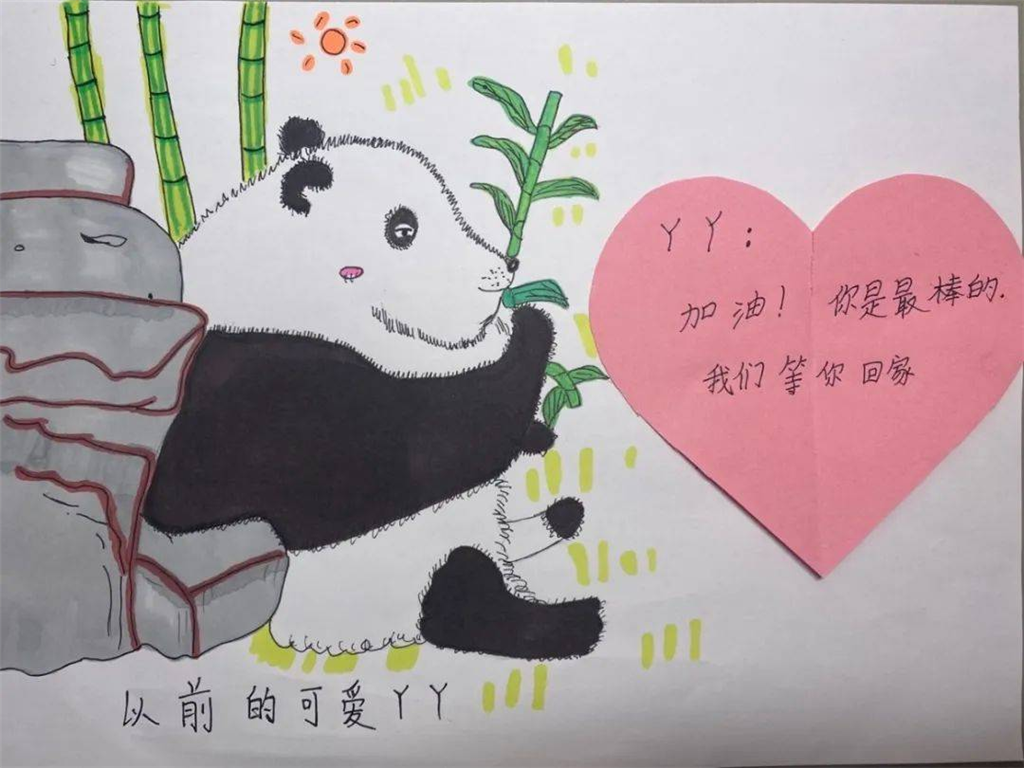 丫丫：
加油！你是最棒的.
我们等你回家
以前的可爱丫丫